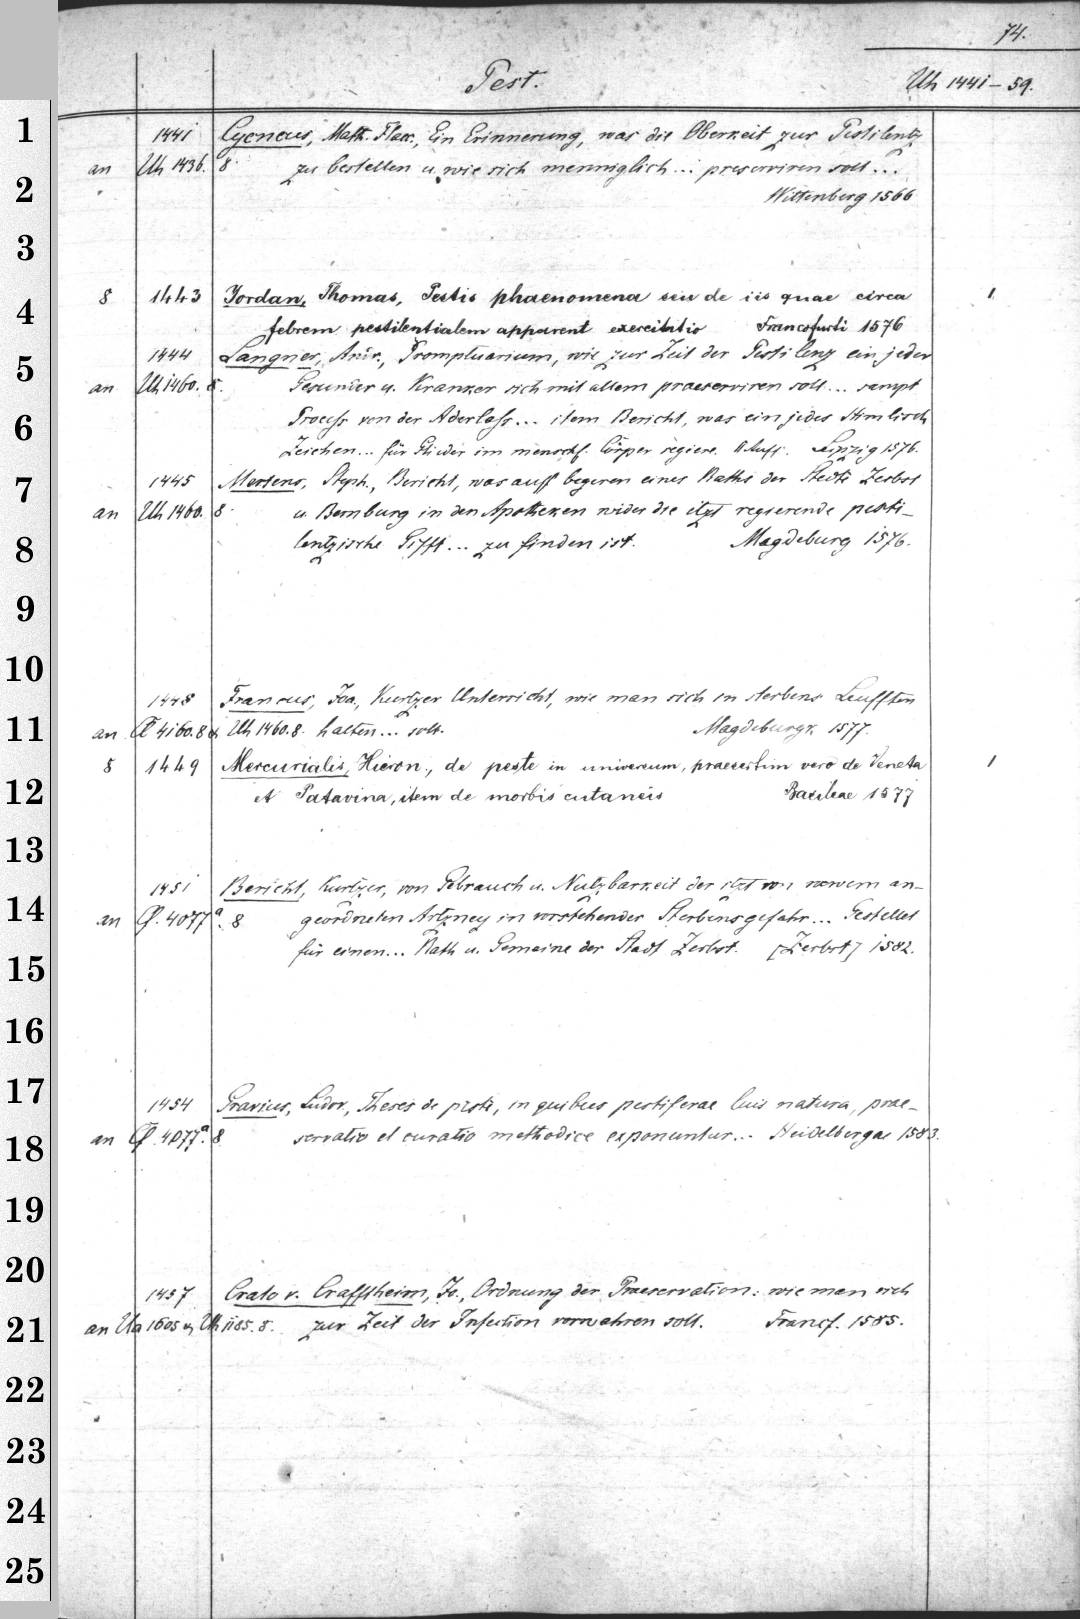 74.
Pest. Uh 1441-59.
1 1441 Cyeneus, Math. Flacc., Ein Erinnerung, was die Oberkeit zur Pestilentz
an Uh 1436. 8 zu bestellen u. wie sich menniglich... preserviren soll...
2 Wittenberg 1566
3
8 1443 Jordan, Thomas, Pestis phaenomena seu de iis quae circa 1
4 febrem pestilentialem apparent exercitatio Francofurti 1576
1444 Langner, Andr., Promptuarium, wie zur Zeit der Pestilenz ein jeder
5 an Uh 1460. 8. Gesunder u. Kranker sich mit allem praeserviren soll... sampt
6 Process von der Aderlass... item Bericht, was ein jedes Himlisch
Zeichen... für Glieder im menschl. Cörper regiere. Leipzig 1576.
7 1445 Mertens, Steph., Bericht, was auff begeren eines Raths der Stedte Zerbst
an Uh 1460. 8. u. Bernburg in den Apotheken wider die itzt regierende pesti-
8 lentzische Gifft... zu finden ist. Magdeburg 1576.
9
10
1448 Francus, Joa., Kurtzer Unterricht, wie man sich in sterbens Leufften
11 an Q 4160.8 & Uh 1460.8. halten... soll. Magdeburgk 1577.
8 1449 Mercurialis, Hieron., de peste in universum, praesertim vero de Veneta 1
12 et Patavina, item de morbis cutaneis Basileae 1577
13
1451 Bericht, Kurtzer, von Gebrauch u. Nutzbarkeit der itzt von newem an-
14 an Q. 4077a. 8 geordneten Artzney in vorstehender Sterbensgefahr... Gestellet
15 für einen... Rath u. Gemeine der Stadt Zerbst. [Zerbst] 1582.
16
17
1454 Gravius, Ludov., Theses de peste, in quibus pestiferae luis natura, prae-
18 an Q. 4077a. 8 servatio et curatio methodice exponuntur... Heidelbergae 1583.
19
20
1457 Crato v. Crafftheim, Jo., Ordnung der Praeservation: wie man sich
21 an Ua 1605 & Uh 1185. 8. zur Zeit der Infection verwahren soll. Francf. 1585.
22
23
24
25